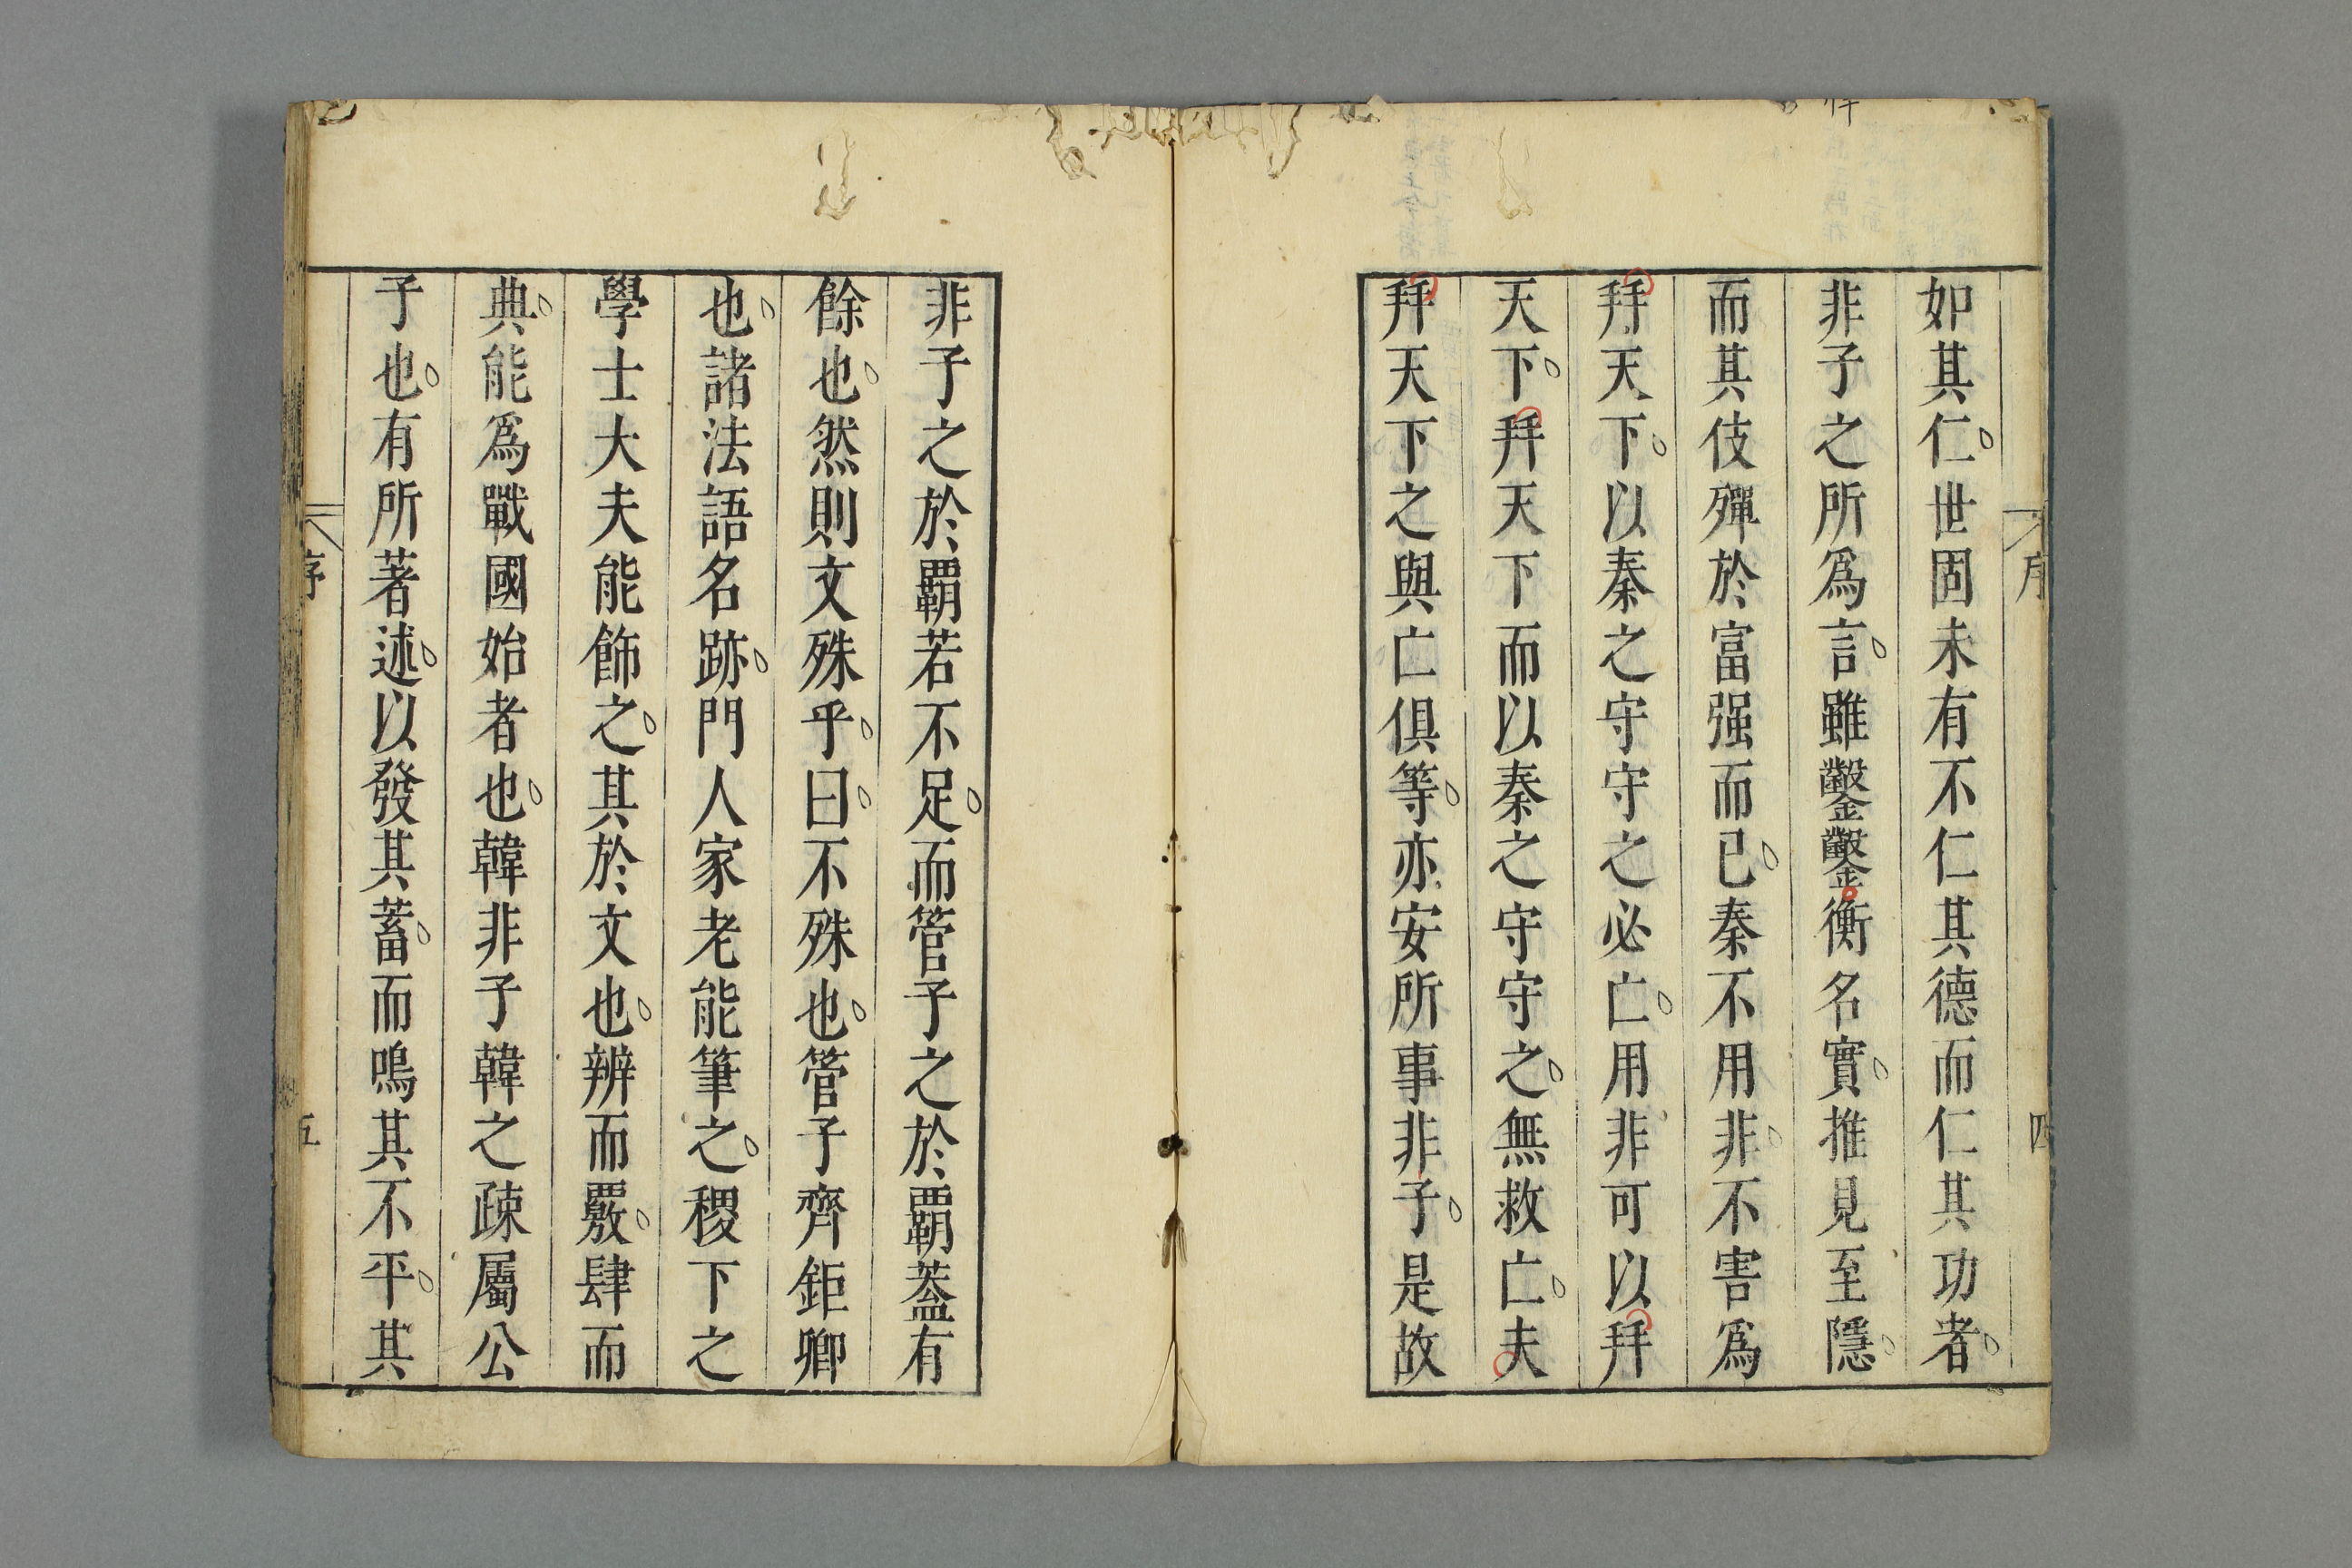 序 四
如其仁世固未有不仁其德而仁其功者
非子之所爲言雖鑿鑿衡名實推見至隱
而其伎殫於富强而已秦不用非不害爲
幷天下以秦之守守之必亡用非可以幷
天下幷天下而以秦之守守之無救亡夫
幷天下之與亡俱等亦安所事非子是故
非子之於覇若不足而管子之於覇葢有
餘也然則文殊乎曰不殊也管子齊鉅卿
也諸法語名跡門人家老能筆之稷下之
學士大夫能飾之其於文也辨而覈肆而
典能爲戰國始者也韓非子韓之疎屬公
子也有所著述以發其蓄而嗚其不平其
序 五